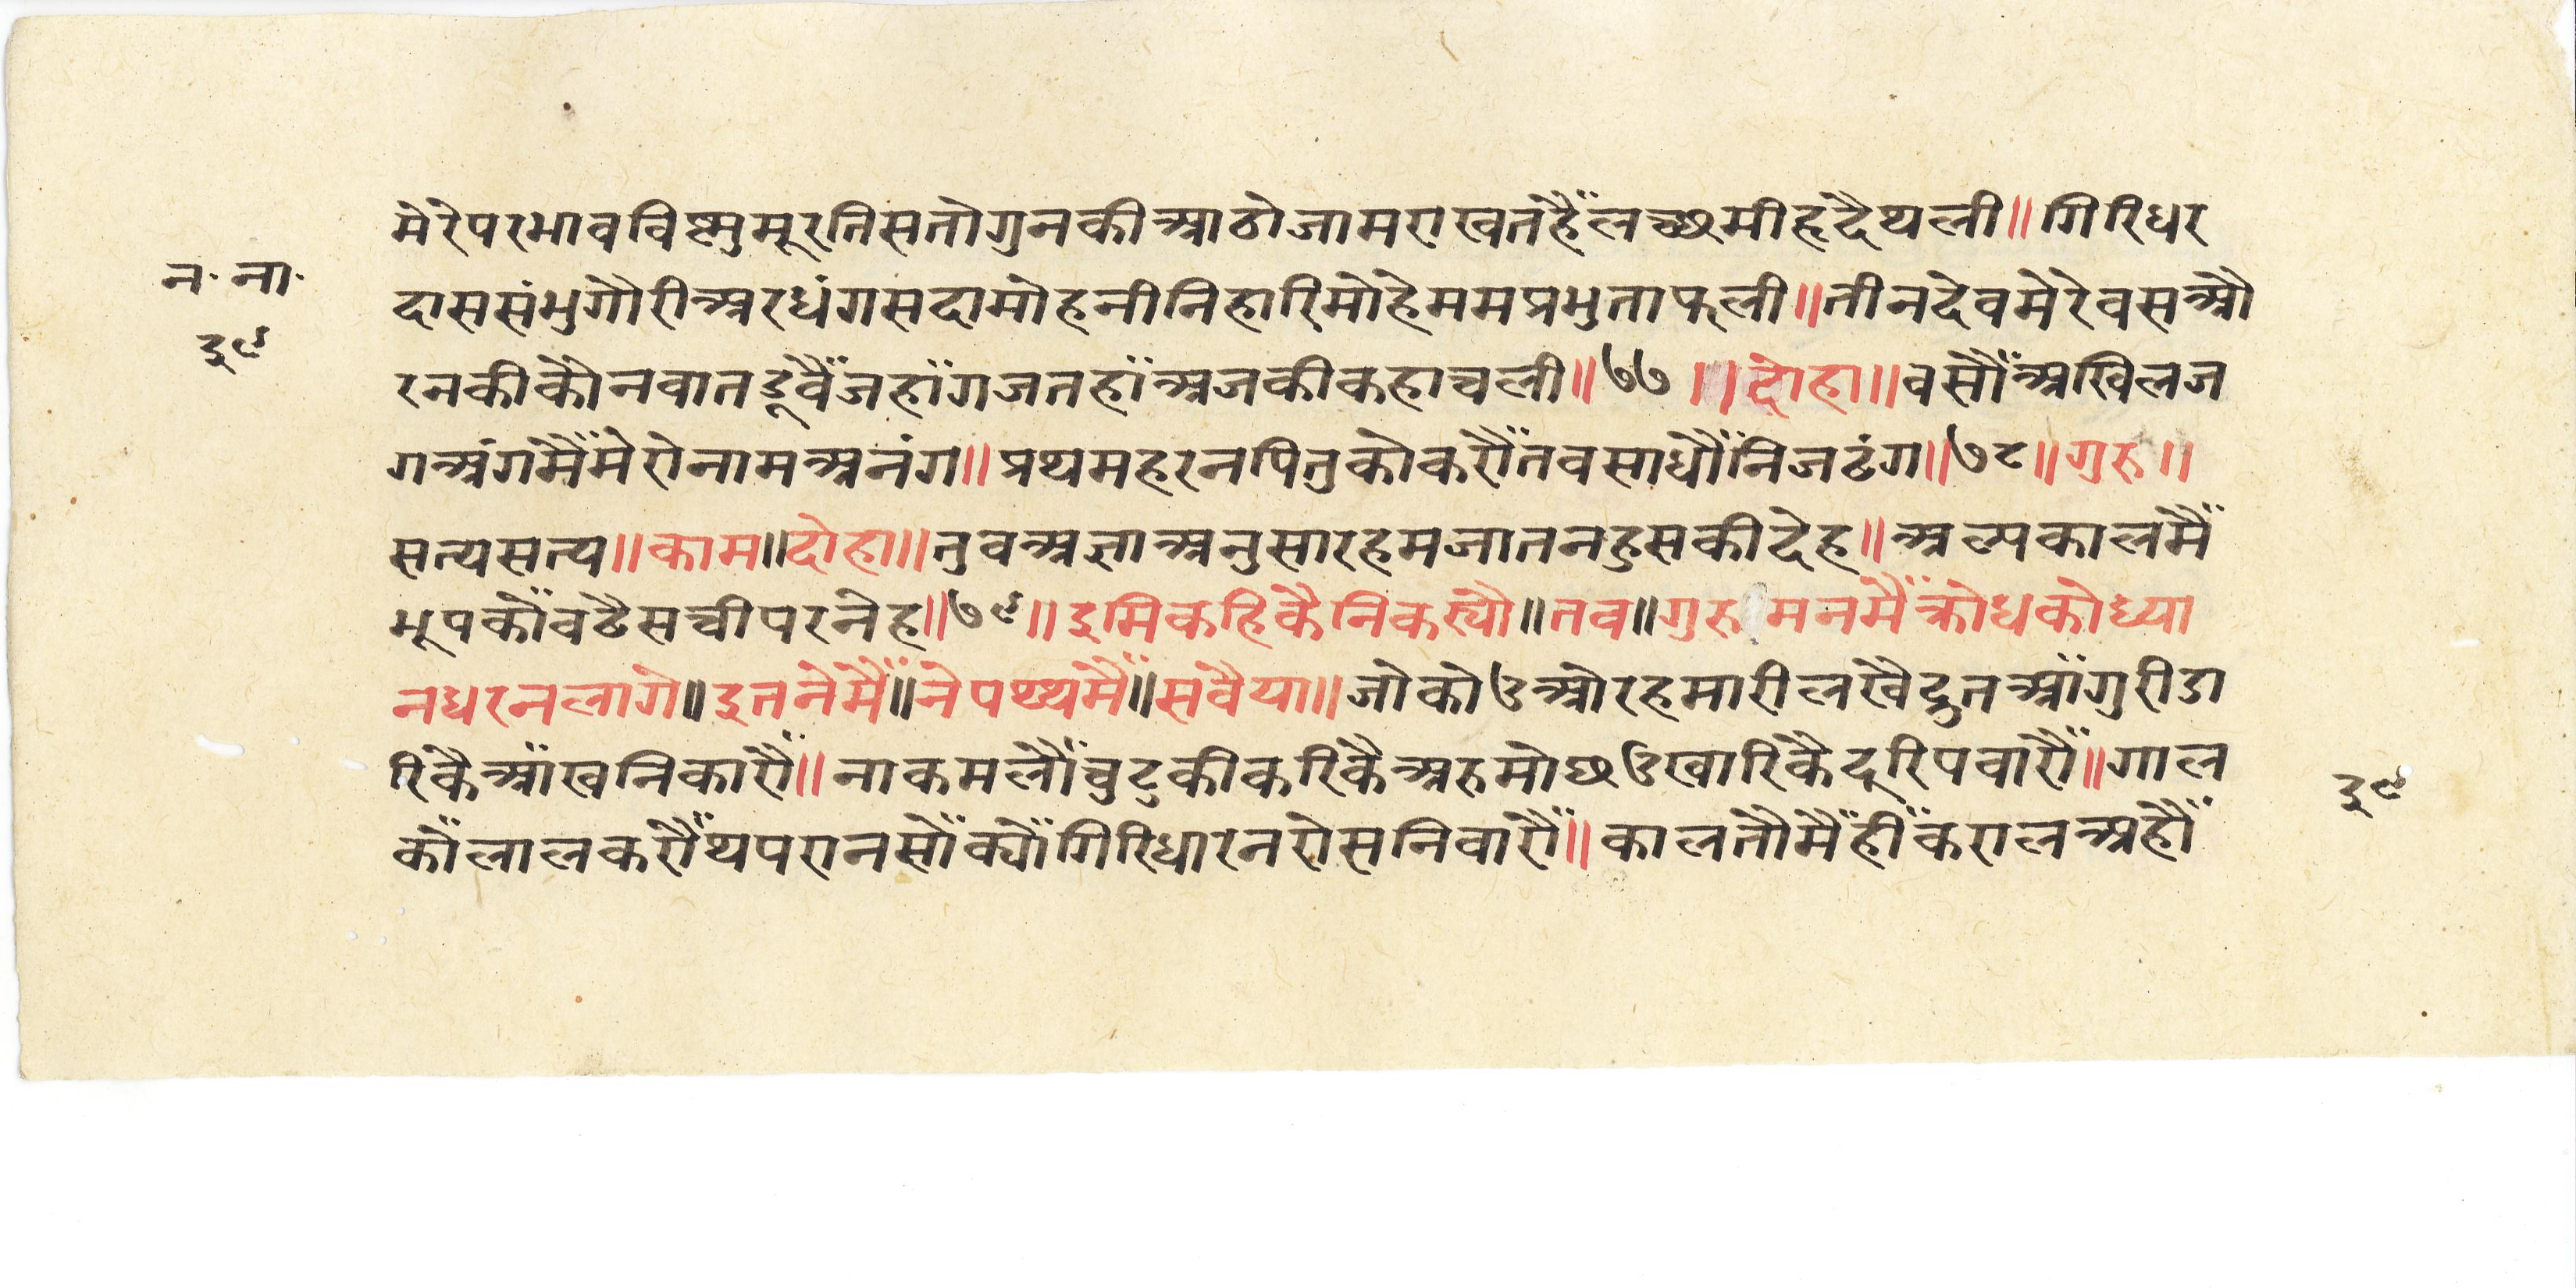 मेरेपरभावविष्णुमूरतिसतोगुनकीआठोजामराखतहैंलच्छमीहृदैथली॥गिरिधर
न॰ ना॰
दाससंभुगौरीअरधंगसदामोहनीनिहारिमोहेममप्रभुताफली॥तीनदेवमेरेवसऔ
३९
रनकीकौनवातडूवैंजहांगजतहांअजकीकहाचली॥७७॥दोहा॥वसौंअखिलज
गअंगमैंमेरोनामअनंग॥प्रथमहरनपितुकोकरौंतवसाधौंनिजढंग॥७८॥गुरु॥
सत्यसत्य॥काम॥दोहा॥तुवअज्ञाअनुसारहमजातनहुसकीदेह॥अल्पकालमैं
भूपकोंवढैसचीपरनेह॥७९॥इमिकहिकैनिकस्यौ॥तव॥गुरुमनमैंक्रोधकोध्या
नधरनलागे॥इतनेमैं॥नेपथ्थमैं॥सवैया॥जोकोउओरहमारीलखैद्रुतआंगुरीडा
रिकैआंखनिकारौं॥नाकमलौंचुटकीकरिकैअरुमोछउखारिकैदूरिपवारौं॥गाल
३९
कोंलालकरौंथपरानसोंक्योंगिरिधारनरोसनिवारौं॥कालतौमैंहींकरालअहौं